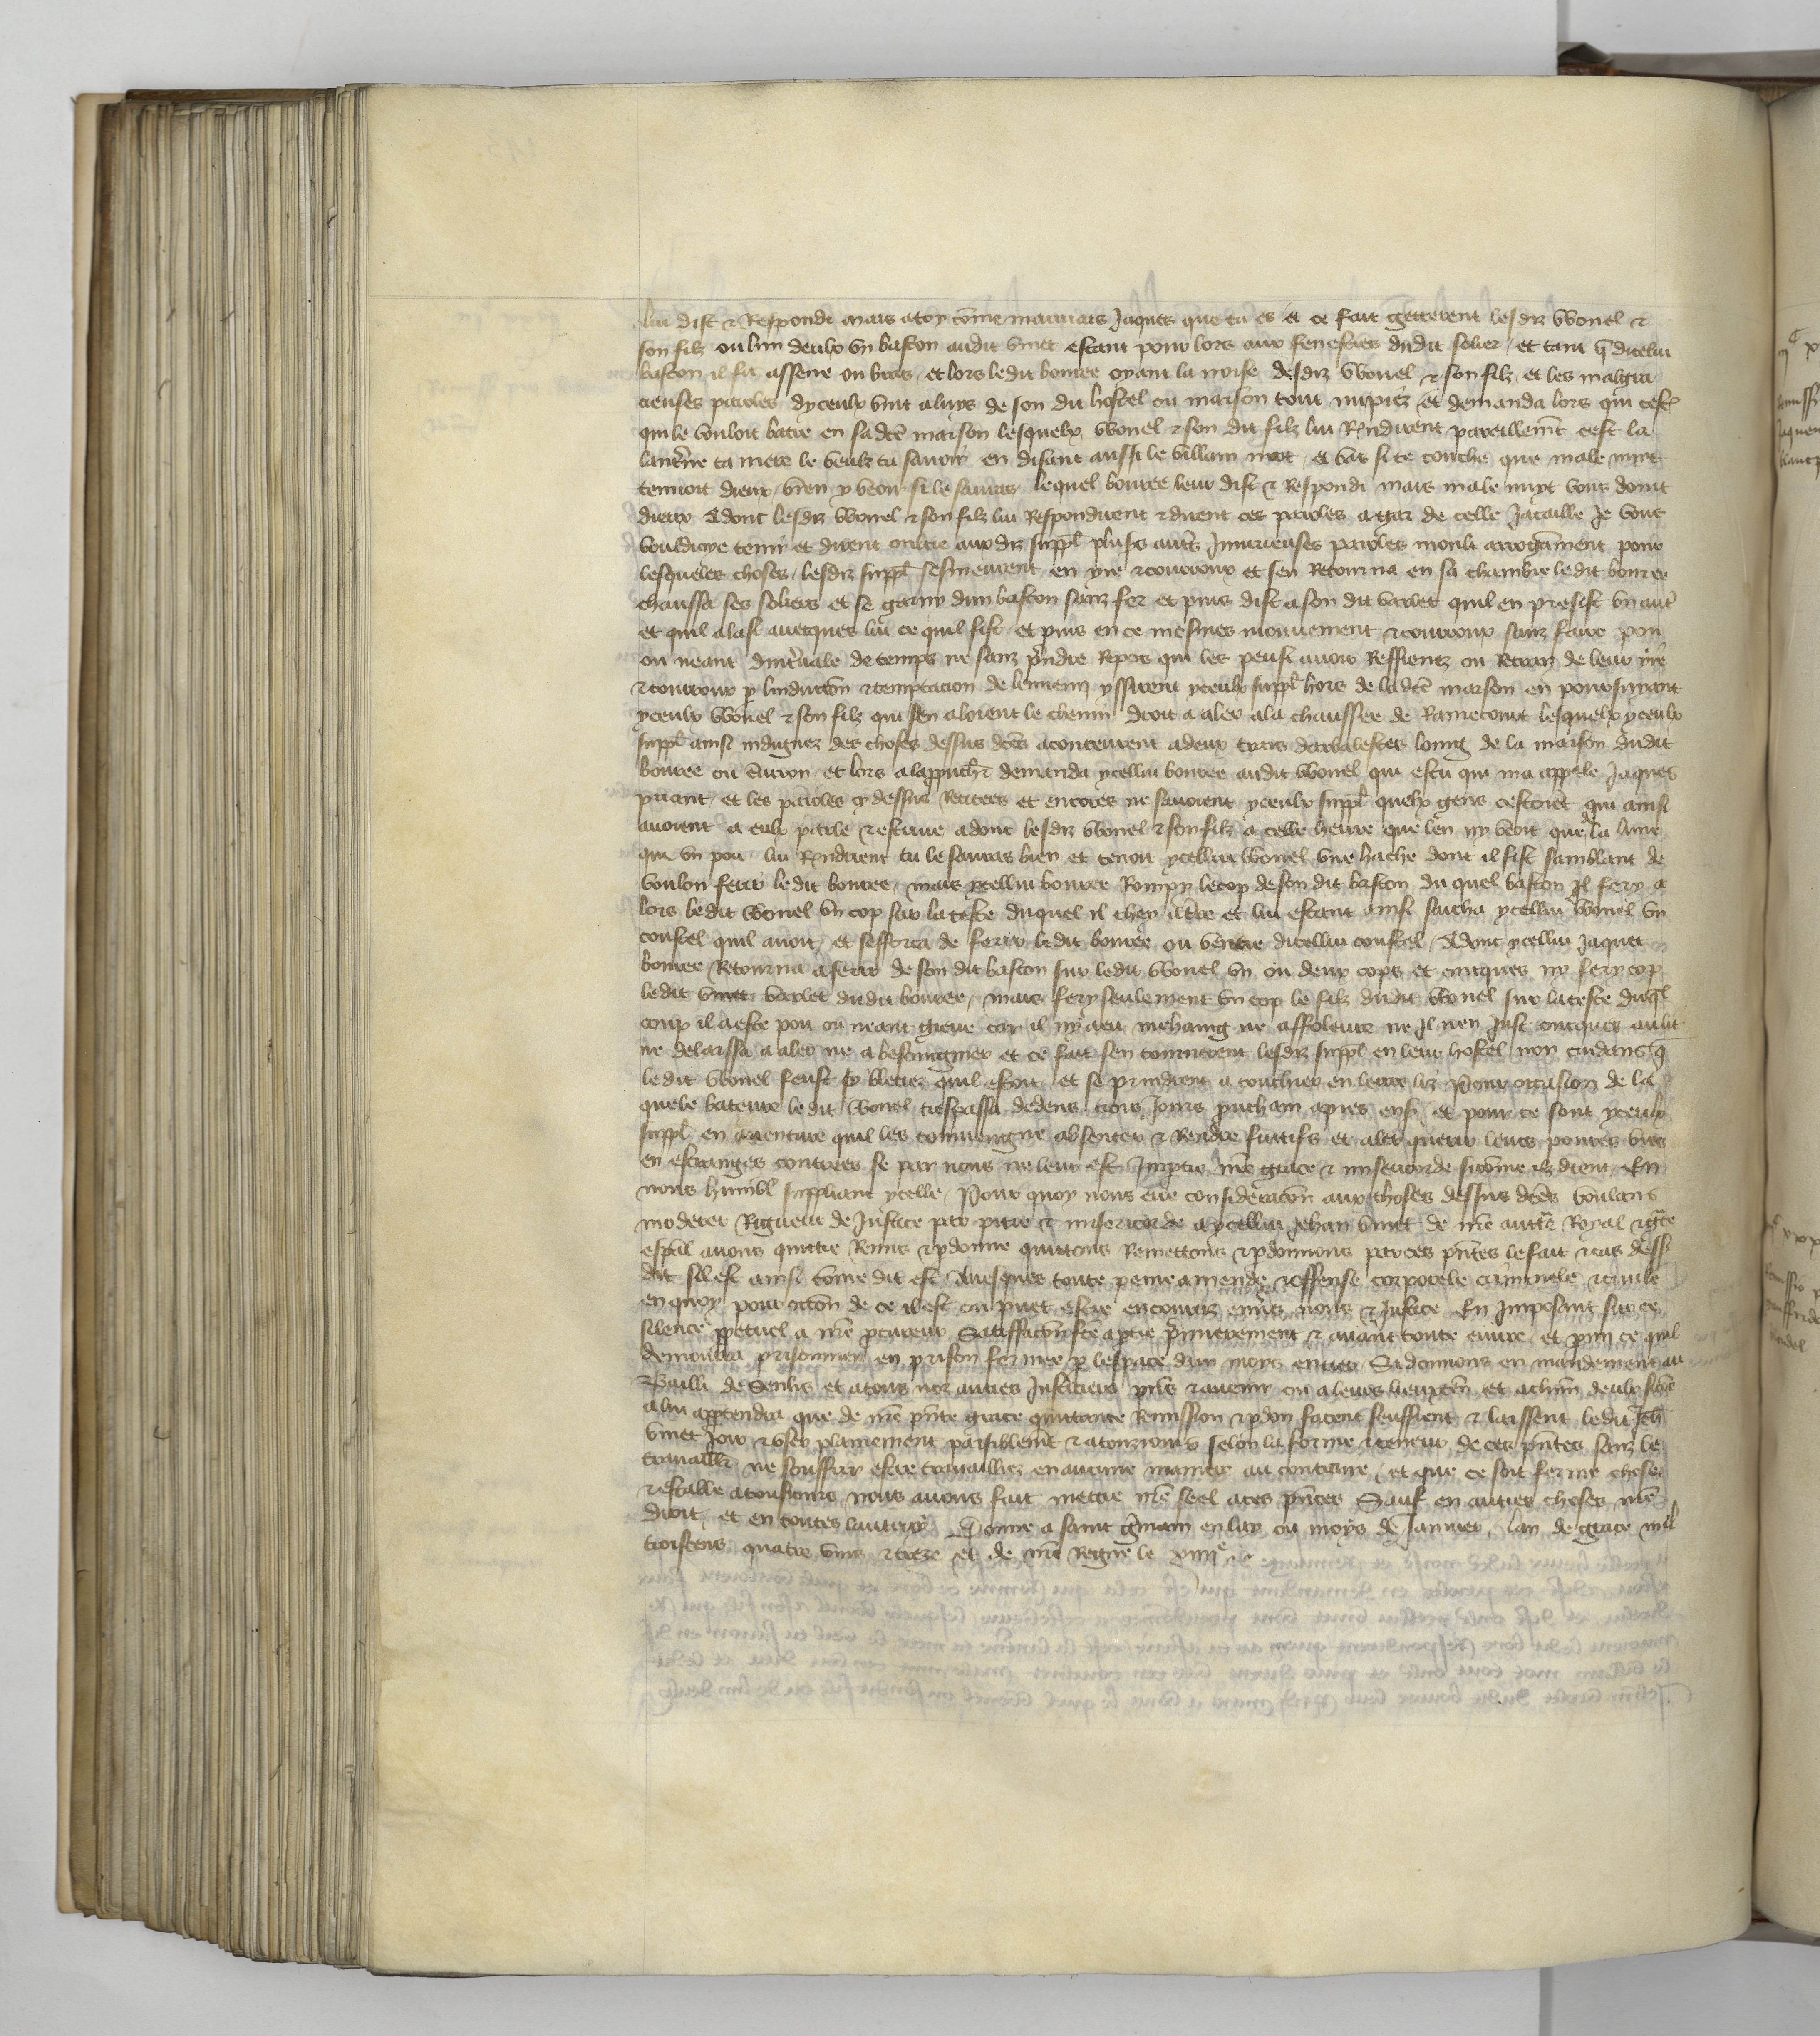 lui dist & Respondi mais a toy comme mauvais Jaques que tu es et ce fait getterent lesdiz Wouel &
son filz ou lun deulx un baston audit vinet estant pour lors aux fenestres dudit solier et tant q dicelui
baston il fu assene ou bras et lors ledit bouree oyant la noise desdiz Wouel & son filz et les malgra
cieuses paroles dyceulx vint a luys de son dit hostel ou maison tout nupiez et demanda lors qui cest
qui le vouloit batre en sa dce maison lesquelx Wouel & son dit filz lui Rndirent pareillemt cest la
ta mere le veulz tu savoir en disant aussi le villain mot et vas si te couche que male nuyt
tenvoit dieux bien y veoir si le sauras lequel bouree leur dist & Respondi mais male nuyt vous doint
dieux Adont lesdiz Wouel & son filz lui Respondirent & dirent ces paroles a gar de celle Jacaille Je vous
vouldroye tenir et dirent oultre aux diz suppl plus's autr Injurieuses paroles moult arrogamment pour
lesqueles choses lesdiz suppl sesmeurent en yre & courroux et sen Retourna en sa chambre ledit bouree
chaussa ses solers et se garny dun baston sanz fer et puis dist a son dit varlet quil en presist un autr
et quil alast avecques lui ce quil fist et puis en ce mesmes mouvement & courroux sanz faire pou
ou neant dintervale de temps ne sanz prndre Repos qui les peust avoir Reffrenez ou Retraiz de leur yre
& courroux p linduccion & temptacion de lennemy yssirent yceulx suppl hors de la dce maison en poursuivant
yceulx Wouel & son filz qui sen aloient le chemin droit a aler a la chaussee de Ramecourt lesquelx yceulx
suppl ainsi indignez des choses dessus dces aconceurent a deux traiz darbalestes loing de la maison dudit
bouree ou environ et lors a lapprouchr demanda ycellui bouree audit Wouel qui es tu qui ma appele Jaques
puant et les paroles cy dessus Recitees et encores ne savoient yceulx suppl quelx gens cestoiet qui ainsi
avoient a eulx parle & estrive adont lesdiz Wouel & son filz a celle heure que len ny veoit que la lune
qun un pou lui Rndirent tu le sauras bien et tenoit ycellui Wouel une hache dont il fist samblant de
vouloir ferir ledit bouree mais ycellui bouree Rompy le cop de son dit baston du quel baston Il fery a
lors ledit Wouel un cop sur la teste duquel il chey a tre et lui estant ainsi sacha ycellui Wouel un
coustel quil avoit et sefforca de ferir ledit bouree ou ventre dicellui coustel Adont ycellui Jaquet
bouree Retourna a ferir de son dit baston sur ledit Wouel un ou deux cops et oncques ny fery cop
ledit vinet varlet dudit bouree mais fery seulement un cop le filz dudit Wouel sur la teste duql
coup il a este pou ou neant greve car il ny a eu mehaing ne affoleure ne Il nen Just oncques au lit
ne delaissa a aler ne a besoingnier et ce fait sen tournerent lesdiz suppl en leur hostel non cuidans q
ledit Wouel feust sy bleciez quil estoit et se prindrent a couchier en leurs liz Pour occasion de la
quele bateure ledit Wouel trespassa dedens trois Jours prouchain apres ensi et pour ce sont yceulx
suppl en aventure quil les conviengne absenter & Rendre fuitifs et aler querir leurs povres vies
en estranges contrees se par nous ne leur est Impartie nre grace & misericorde si comme ilz dient En
nous humbl suppliant ycelle Pour quoy nous eue consideracon aux choses dessus dces voulans
moderer Rigueur de Justice par pitie & misericorde a ycellui Jehan vinet de nre auttre Royal & gce
espal avons quittie Remis & pdonne quittons Remettons & pdonnons par ces pntes le fait & cas dess
dit sil est ainsi comme dit est Avesques toute peine amende & offense corporele criminele & civile
en quoy pour occon de ce il est ou puet estre encouruz envrs nous & Justice En Imposant sur ce
silence ppetuel a nre pcureur Satisffaccion fce a ptie prmierement & avant toute euvre et pmi ce quil
demourra prisonnier en prison fermee p lespace dun moys entier Si donnons en mandement au
Bailli de Senlis et a touz noz autres Justiciers pns & avenir ou a leurs lieuxten et a chun deulx sicoe
a lui apptendra que de nre pnte grace quittance Remission & pdon facent seuffrent & laissent ledit Jeh
vinet Joir & user plainement paisiblemt & a touzjours selon la forme & teneur de ces pntes sanz le
travaillr ne souffrir estre travailliez en aucune maniere au contraire et que ce soit ferme chose
& estable a tousjours nous avons fait mettre nre seel a ces pntes Sauf en autres choses nre
droit et en toutes lautruy Donne a saint Germain en laye ou moys de Janvier lan de grace mil
troiscens quatre vins & treze et de nre Regne le xiiiie